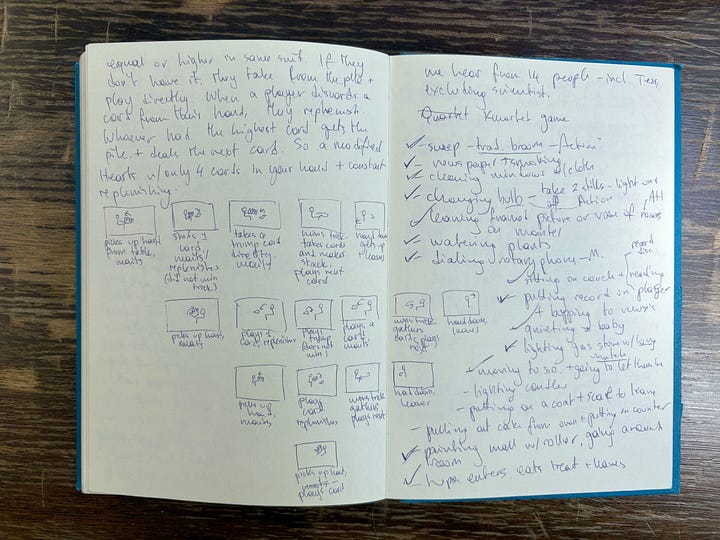 equal or higher in same suit. If they
don't have it, they take from the pile +
play directly. When a player discards a
card from their hand, they replenish.
Whoever had the highest card gets the
pile, + deals the next card. So a modified
Hearts w/ only 4 cards in your hand + constant
replenishing.
picks up hand
from table,
waits
card,
waits
replenishes
(did not win
trick)
takes a
trump card
directly,
wins trick-
takes cards
and makes
stack.
plays next
card
hand down
gets up
+ leaves
picks up hand,
waits
plays 1
card, replenishes
plays
(does not
win)
plays a
card
waits
wins trick-
gathers
cards, plays
next
hand down,
leaves
picks up
hand,
waits
plays
card
replenishes
wins trick
gathers,
plays next
hand down,
leaves
picks up hand,
plays card
we hear from 14 people - incl. Tess,
excluding scientist.
Quartet Kwartet game
sweep - trad. broom - Action?
newspaper +
cleaning windows w/ cloth
changing bulb - take 2 stills - light on +
off Action
leaving framed picture or vase of roses
on mantel
watering plants
dialing rotary phone - M.
sitting on couch + reading
record
putting record on player
A bopping to music
quieting a baby
lighting gas stove w/ long
match
moving to so. + going to let them in
- lighting candles
- putting on a coat + scarf to leave
- pulling out cake from oven + putting on counter
painting wall w/ roller, going around
room
enters eats treat + leaves